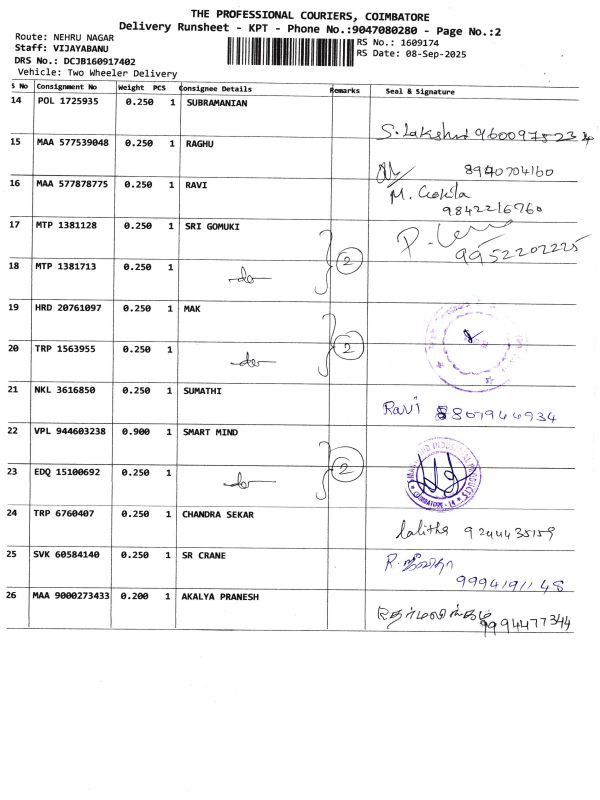 THE PROFESSIONAL COURIERS, COIMBATORE
Delivery Runsheet - KPT - Phone No.:9047080280 - Page No.:2
Route: NEHRU NAGAR
RS No.: 1609174
Staff: VIJAYABANU
RS Date: 08-Sep-2025
DRS No.: DCJB160917402
Vehicle: Two Wheeler Delivery
S No Consignment No Weight PCS Consignee Details Remarks Seal & Signature
14 POL 1725935 0.250 1 SUBRAMANIAN
S. Lakshmi 9600975234
15 MAA 577539048 0.250 1 RAGHU
8940704160
16 MAA 577878775 0.250 1 RAVI M. Gokila
9842216760
17 MTP 1381128 0.250 1 SRI GOMUKI
9952202225
18 MTP 1381713 0.250 1 -do- 2
19 HRD 20761097 0.250 1 MAK
20 TRP 1563955 0.250 1 -do- 2
21 NKL 3616850 0.250 1 SUMATHI
Ravi 8807944934
22 VPL 944603238 0.900 1 SMART MIND
23 EDQ 15100692 0.250 1 -do- 2
24 TRP 6760407 0.250 1 CHANDRA SEKAR
Lalitha 9244435159
25 SVK 60584140 0.250 1 SR CRANE
9994191148
26 MAA 9000273433 0.200 1 AKALYA PRANESH
9994477344